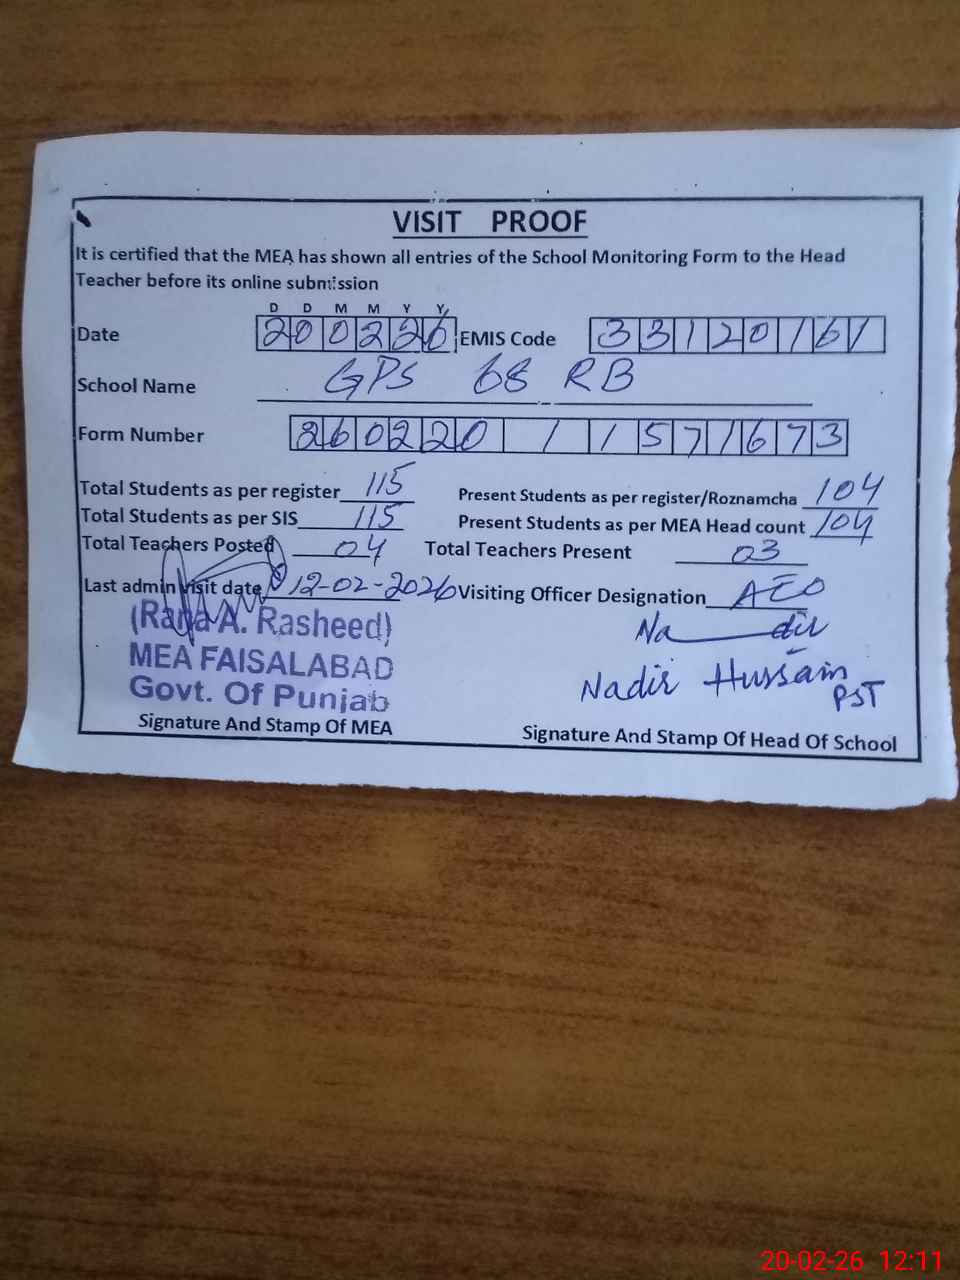 VISIT PROOF
It is certified that the MEA has shown all entries of the School Monitoring Form to the Head
Teacher before its online submission
D D M M Y Y
Date 200226 EMIS Code 33120161
School Name GPS 68 RB
Form Number 260220 1 1571673
Total Students as per register 115 Present Students as per register/Roznamcha 104
Total Students as per SIS 115 Present Students as per MEA Head count 104
Total Teachers Posted 04 Total Teachers Present 03
Last admin visit date 12-02-2026 Visiting Officer Designation AEO
(Rana A. Rasheed) Nadir
MEA FAISALABAD Nadir Hussain
Govt. Of Punjab PST
Signature And Stamp Of MEA Signature And Stamp Of Head Of School
20-02-26 12:11